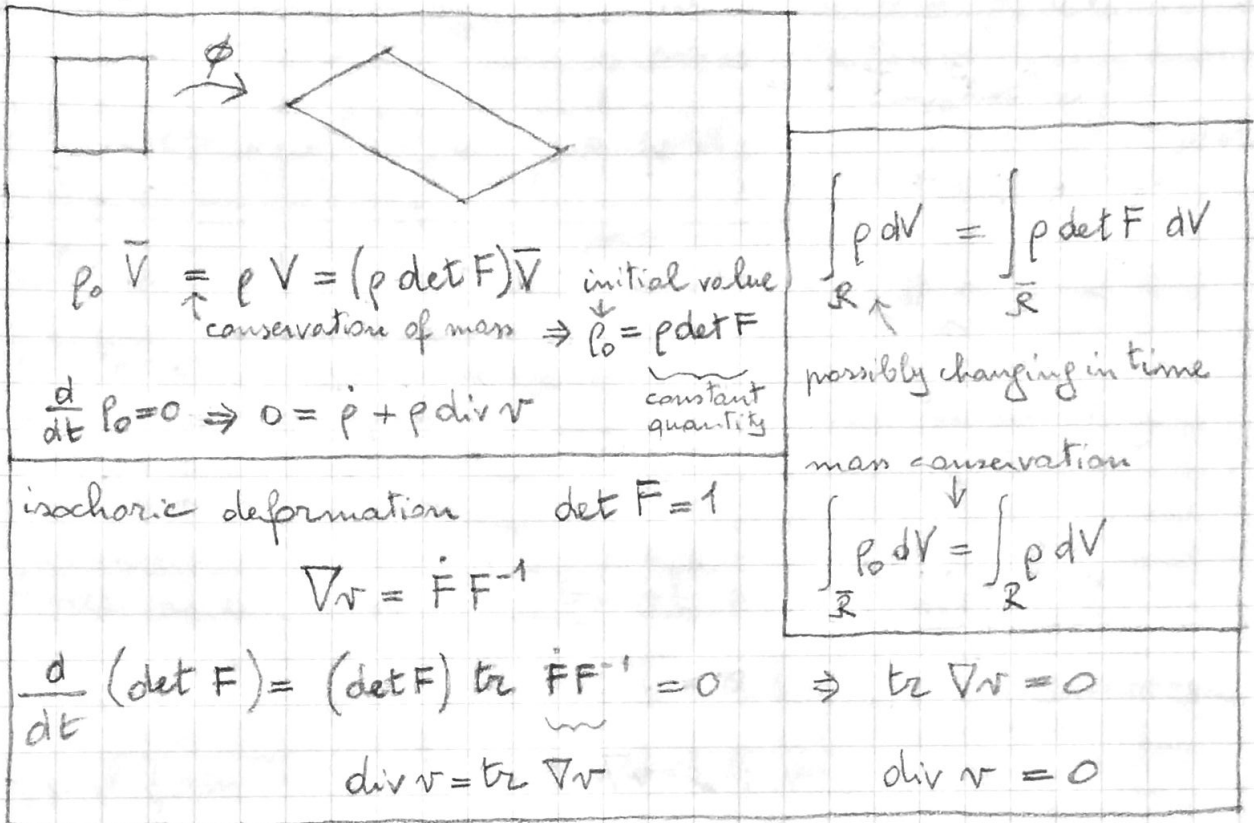 ϕ
ρ₀ V̅ = ρ V = (ρ det F) V̅ initial value
↑ conservation of mass ⇒ ρ₀ = ρ det F
constant
quantity
d/dt ρ₀ = 0 ⇒ 0 = ρ̇ + ρ div v
∫_R ρ dV = ∫_R̅ ρ det F dV
possibly changing in time
mass conservation
∫_R̅ ρ₀ dV = ∫_R ρ dV
isochoric deformation det F = 1
∇v = Ḟ F⁻¹
d/dt (det F) = (det F) tr Ḟ F⁻¹ = 0 ⇒ tr ∇v = 0
div v = tr ∇v div v = 0